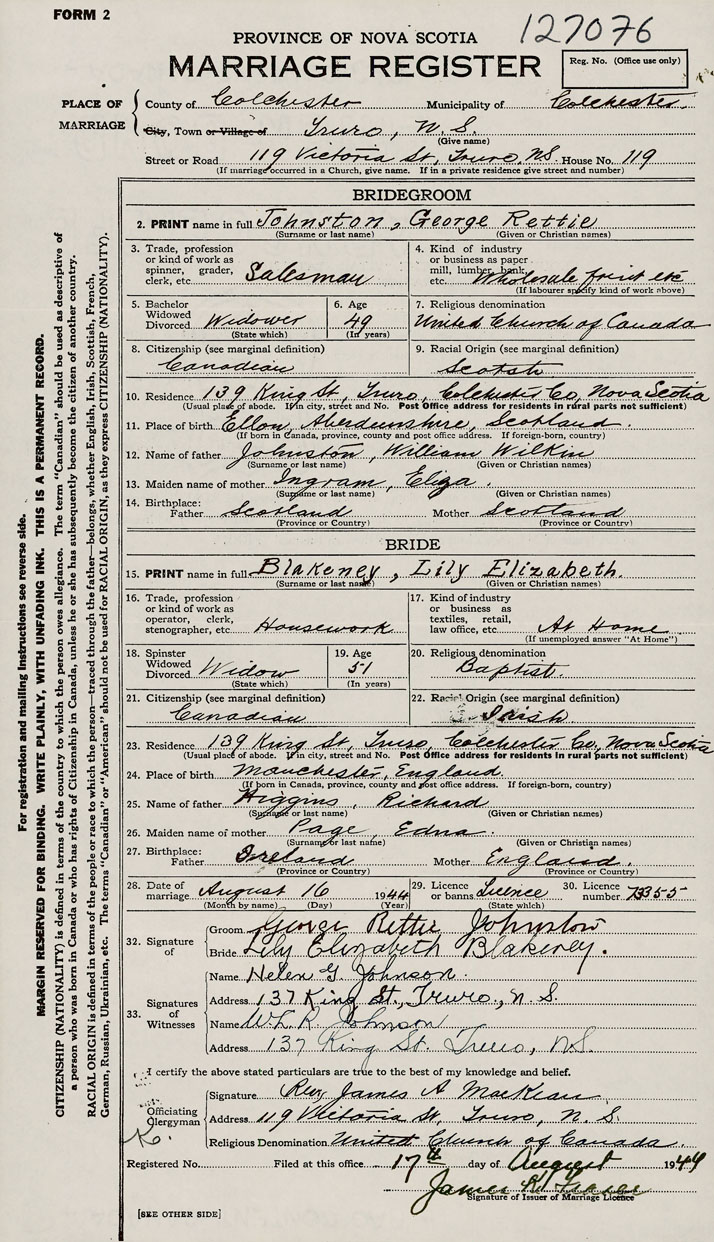 FORM 2
127076
PROVINCE OF NOVA SCOTIA
MARRIAGE REGISTER
Reg. No. (Office use only)
PLACE OF MARRIAGE
County of Colchester Municipality of Colchester.
City, Town or Village of Truro, N.S.
(Give name)
Street or Road 119 Victoria St, Truro, NS. House No. 119
(If marriage occurred in a Church, give name. If in a private residence give street and number)
BRIDEGROOM
2. PRINT name in full Johnston, George Rettie
(Surname or last name) (Given or Christian names)
3. Trade, profession or kind of work as spinner, grader, clerk, etc. Salesman
4. Kind of industry or business as paper mill, lumber, bank, etc. Wholesale fruit etc
(If labourer specify kind of work above)
5. Bachelor Widowed Divorced Widower
(State which)
6. Age 49
(In years)
7. Religious denomination
United Church of Canada
8. Citizenship (see marginal definition)
Canadian
9. Racial Origin (see marginal definition)
Scotsh
10. Residence 139 King St, Truro, Colchester Co, Nova Scotia
(Usual place of abode. If in city, street and No. Post Office address for residents in rural parts not sufficient)
11. Place of birth Ellon, Aberdeenshire, Scotland.
(If born in Canada, province, county and post office address. If foreign-born, country)
12. Name of father Johnston, William Wilkin
(Surname or last name) (Given or Christian names)
13. Maiden name of mother Ingram, Eliza.
(Surname or last name) (Given or Christian names)
14. Birthplace: Father Scotland Mother Scotland
(Province or Country) (Province or Country)
BRIDE
15. PRINT name in full Blakeney, Lily Elizabeth.
(Surname or last name) (Given or Christian names)
16. Trade, profession or kind of work as operator, clerk, stenographer, etc. Housework
17. Kind of industry or business as textiles, retail, law office, etc. At Home
(If unemployed answer "At Home")
18. Spinster Widowed Divorced Widow
(State which)
19. Age 51
(In years)
20. Religious denomination
Baptist.
21. Citizenship (see marginal definition)
Canadian
22. Racial Origin (see marginal definition)
Irish
23. Residence 139 King St, Truro, Colchester Co., Nova Scotia
(Usual place of abode. If in city, street and No. Post Office address for residents in rural parts not sufficient)
24. Place of birth Manchester, England
(If born in Canada, province, county and post office address. If foreign-born, country)
25. Name of father Higgins, Richard
(Surname or last name) (Given or Christian names)
26. Maiden name of mother Page, Edna.
(Surname or last name) (Given or Christian names)
27. Birthplace: Father Ireland Mother England.
(Province or Country) (Province or Country)
28. Date of marriage August 16 1944
(Month by name) (Day) (Year)
29. Licence or banns. Licence
(State which)
30. Licence number 73355
32. Signature of
Groom George Rettie Johnston
Bride Lily Elizabeth Blakeney.
33. Signatures of Witnesses
Name Helen G. Johnson.
Address 137 King St., Truro., N.S.
Name W. L. R. Johnson
Address 137 King St. Truro, N.S.
I certify the above stated particulars are true to the best of my knowledge and belief.
Officiating Clergyman
Signature Rev. James A MacKean
Address 119 Victoria St, Truro, N.S.
Religious Denomination United Church of Canada.
Registered No. Filed at this office 17th day of August 1944
James R. Fraser
Signature of Issuer of Marriage Licence
[SEE OTHER SIDE]
For registration and mailing instructions see reverse side.
MARGIN RESERVED FOR BINDING. WRITE PLAINLY, WITH UNFADING INK. THIS IS A PERMANENT RECORD.
CITIZENSHIP (NATIONALITY) is defined in terms of the country to which the person owes allegiance. The term "Canadian" should be used as descriptive of
a person who was born in Canada or who has rights of Citizenship in Canada, unless he or she has subsequently become the citizen of another country.
RACIAL ORIGIN is defined in terms of the people or race to which the person—traced through the father—belongs, whether English, Irish, Scottish, French,
German, Russian, Ukrainian, etc. The terms "Canadian" or "American" should not be used for RACIAL ORIGIN, as they express CITIZENSHIP (NATIONALITY).